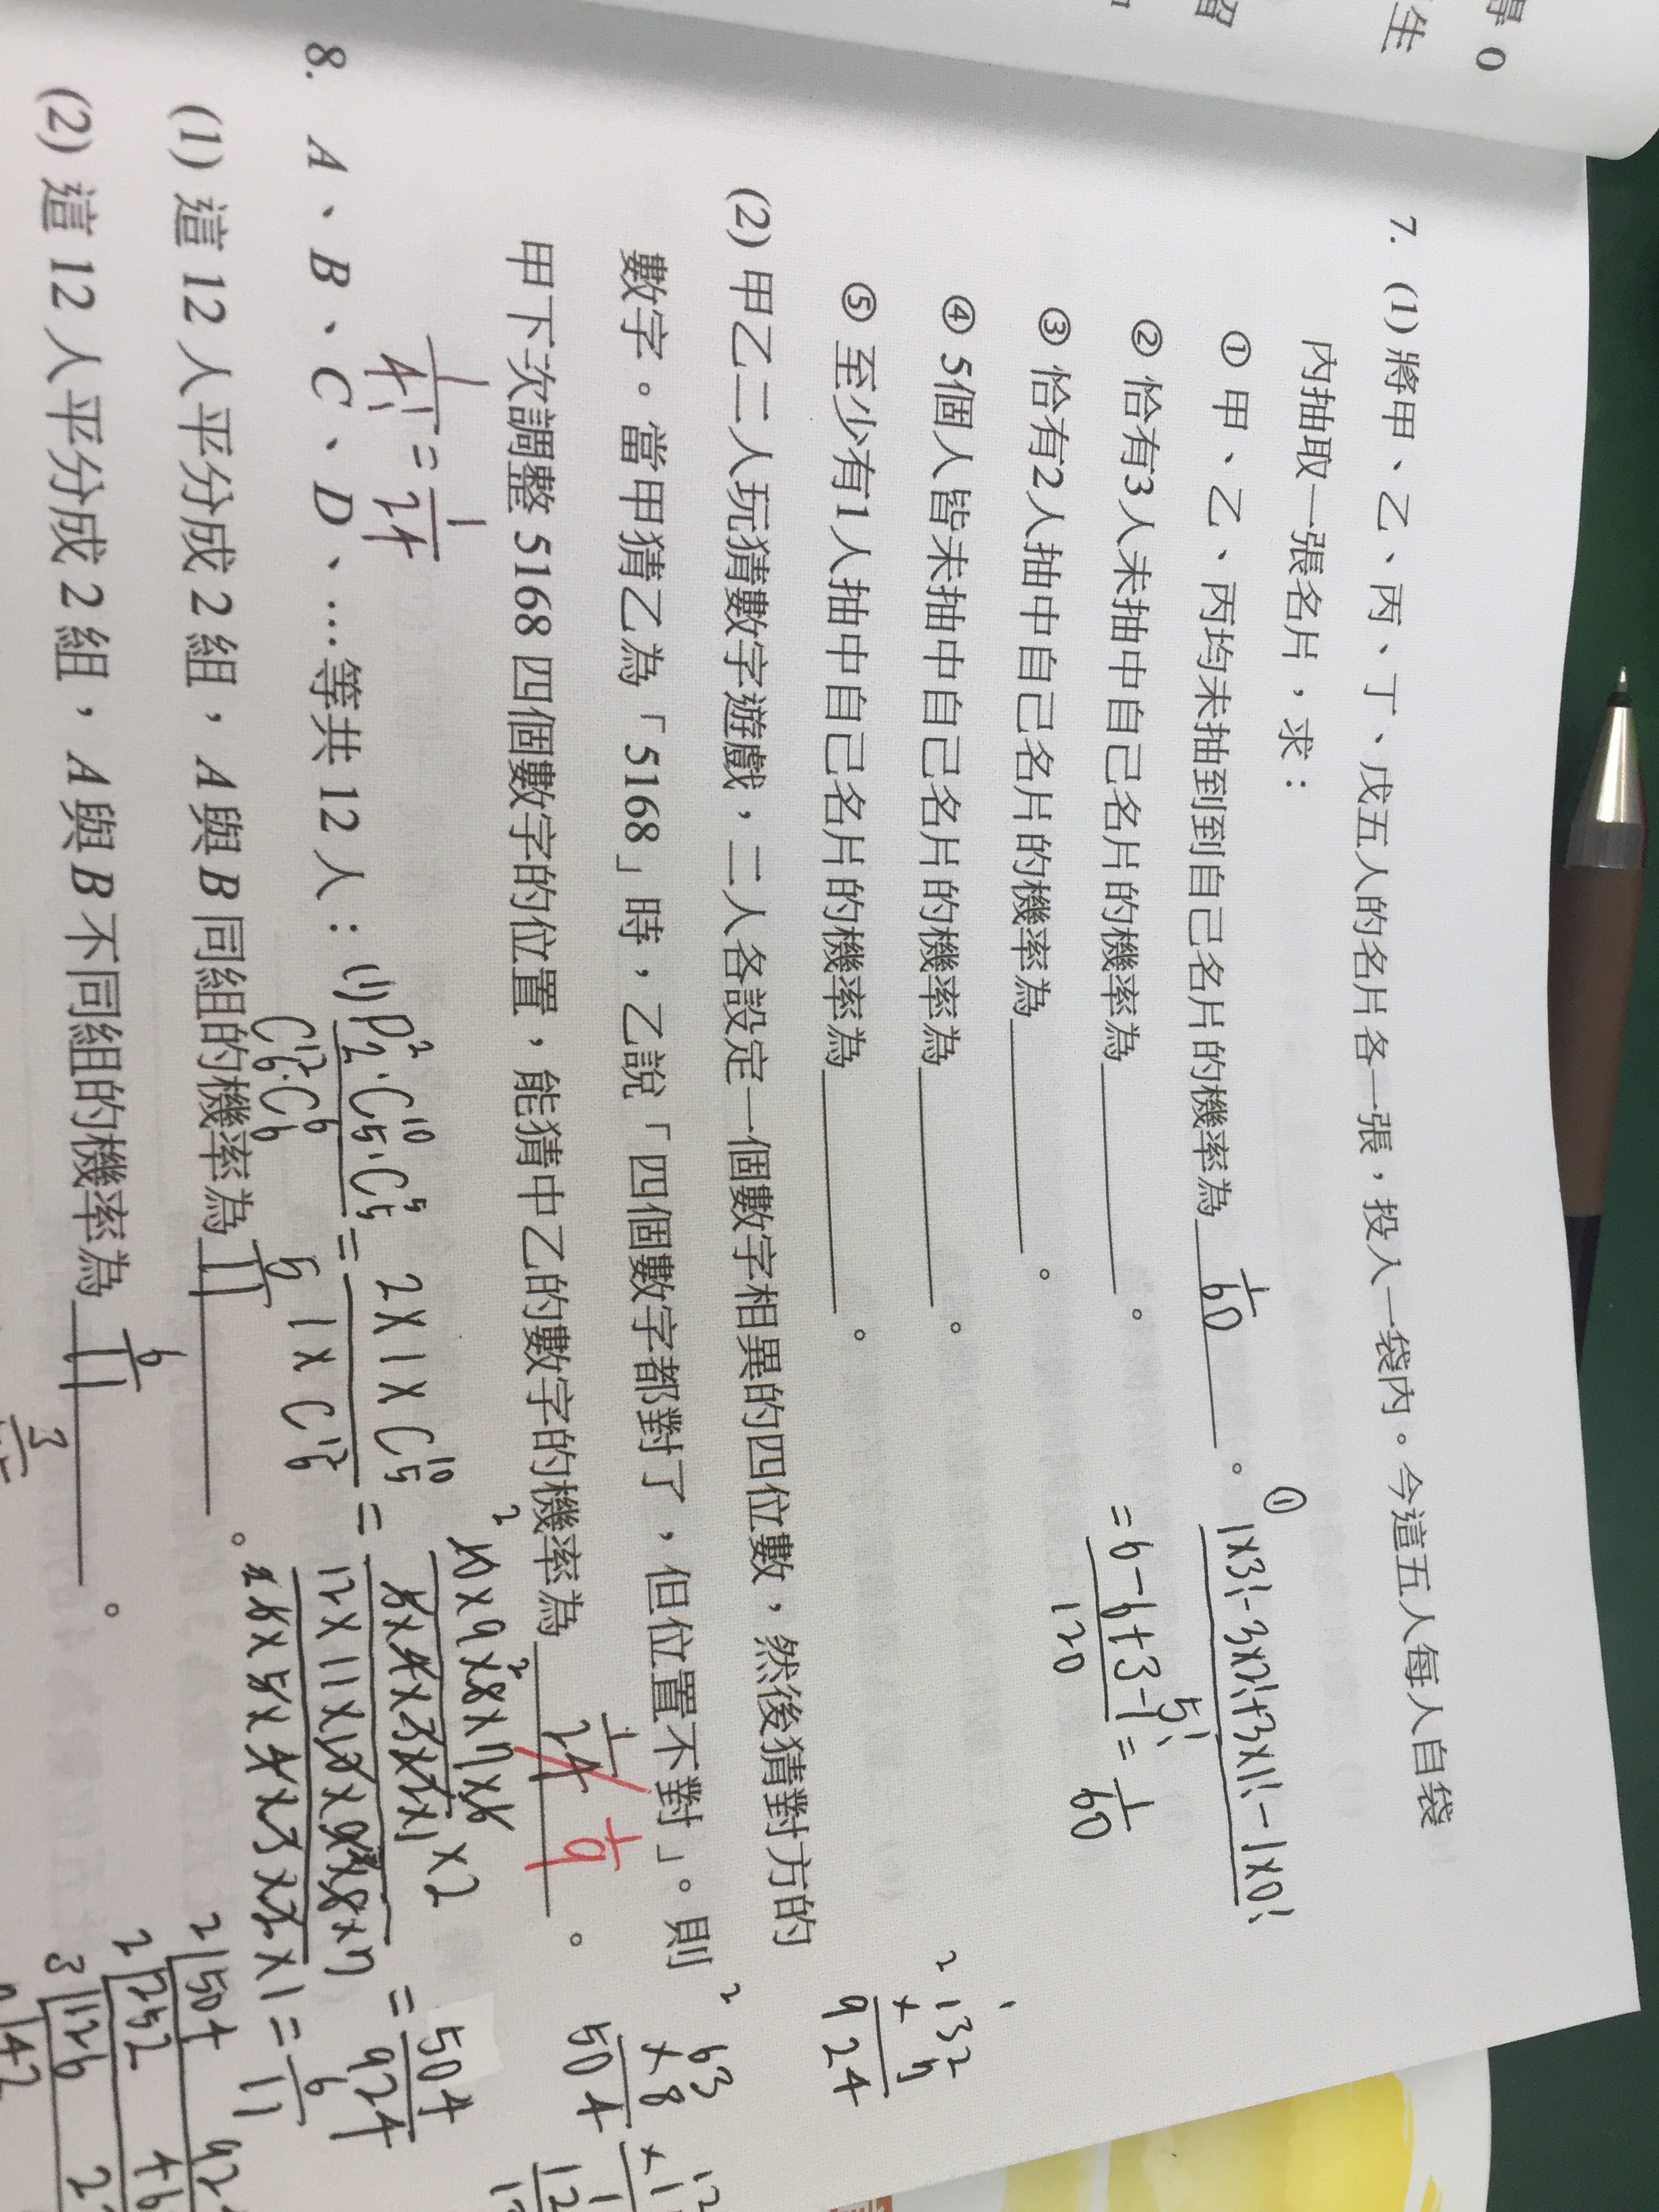 得 0
生
7. (1) 將甲、乙、丙、丁、戊五人的名片各一張,投入一袋內。今這五人每人自袋
內抽取一張名片,求:
① 甲、乙、丙均未抽到到自己名片的機率為 1/60 。
① 1x3!-3x2!+3x1!-1x0! / 5!
= 6-6+3-1 / 120 = 1/60
② 恰有3人未抽中自己名片的機率為 。
③ 恰有2人抽中自己名片的機率為 。
④ 5個人皆未抽中自己名片的機率為 。
⑤ 至少有1人抽中自己名片的機率為 。
(2) 甲乙二人玩猜數字遊戲,二人各設定一個數字相異的四位數,然後猜對方的
數字。當甲猜乙為「5168」時,乙說「四個數字都對了,但位置不對」。則
甲下次調整 5168 四個數字的位置,能猜中乙的數字的機率為 1/24 1/9 。
1/4! = 1/24
132
x 7
924
63
x 8
504
8. A、B、C、D、…等共 12 人:
(1) P²₂·C¹⁰₅·C⁵₅ / C¹²₆·C⁶₆ = 2x1xC¹⁰₅ / 1xC¹²₆ = 10x9x8x7x6 / 5x4x3x2x1 x2 / 12x11x10x9x8x7 / 6x5x4x3x2x1 = 504/924 = 6/11
(1) 這 12 人平分成 2 組,A 與 B 同組的機率為 5/11 。
(2) 這 12 人平分成 2 組,A 與 B 不同組的機率為 6/11 。
2 504
2 252
3 126
42